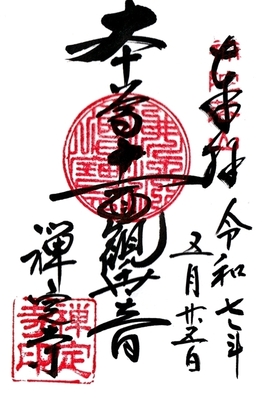 奉拝
令和七年
五月廿五日
本尊十一面觀世音
禅定寺
禅定
寺印